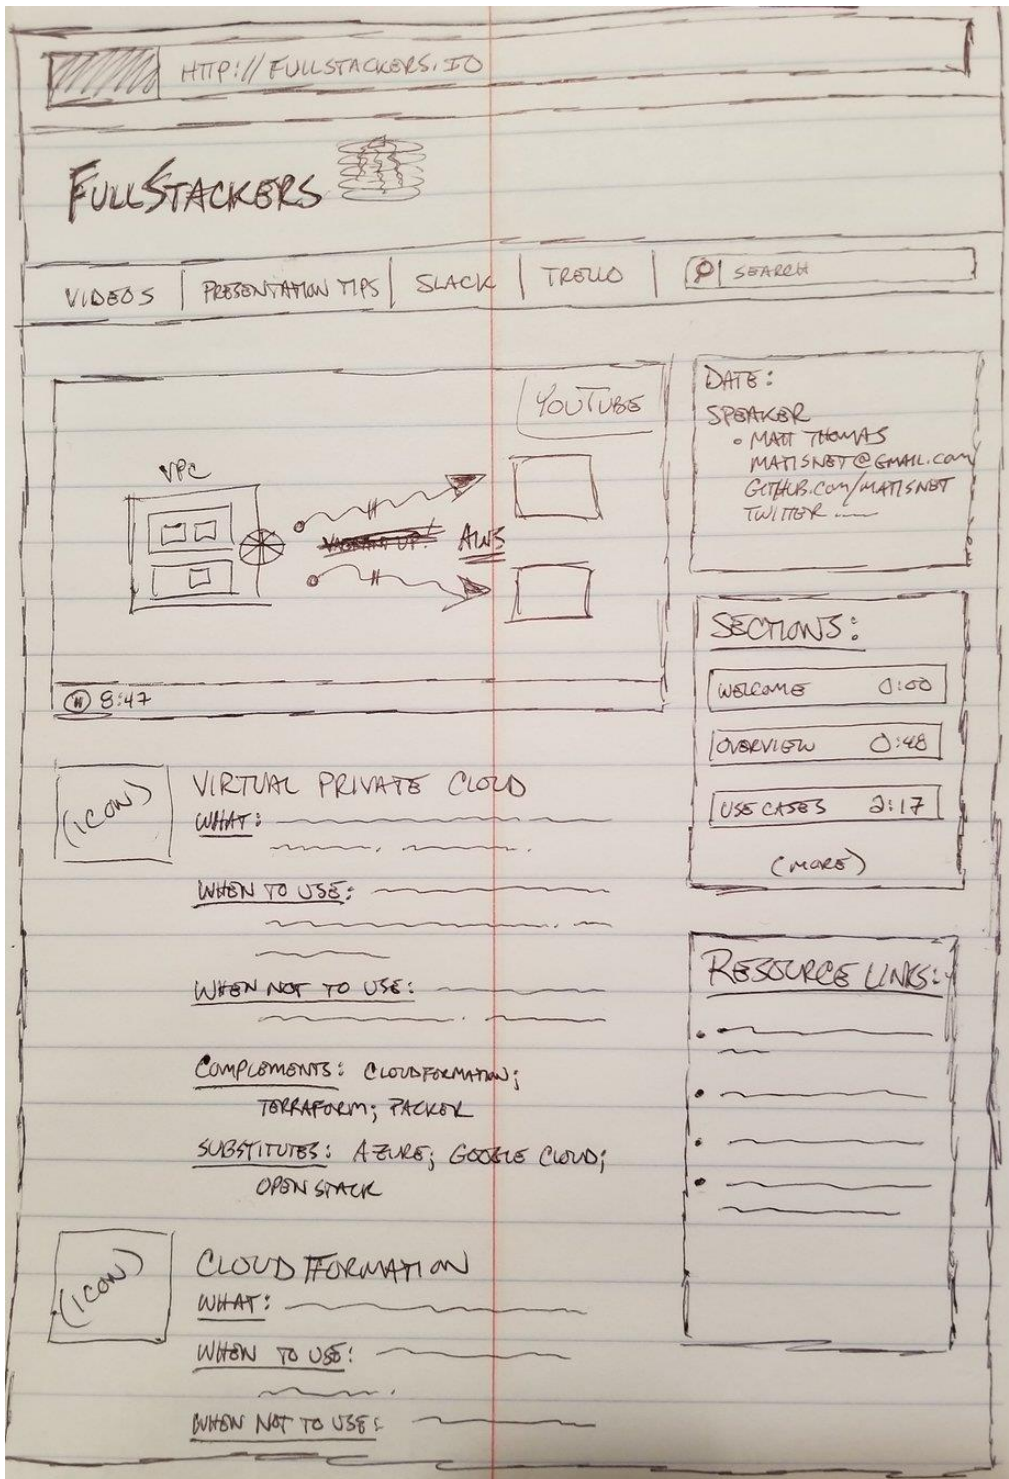 HTTP://FULLSTACKERS.IO
FULLSTACKERS
VIDEOS | PRESENTATION TIPS | SLACK | TRELLO | SEARCH
YOUTUBE
VPC
VAGRANT UP! AWS
8:47
DATE:
SPEAKER
• MATT THOMAS
MATISNET@GMAIL.COM
GITHUB.COM/MATISNET
TWITTER
SECTIONS:
WELCOME 0:00
OVERVIEW 0:48
USE CASES 2:17
(MORE)
RESOURCE LINKS:
(ICON)
VIRTUAL PRIVATE CLOUD
WHAT:
WHEN TO USE:
WHEN NOT TO USE:
COMPLEMENTS: CLOUDFORMATION;
TERRAFORM; PACKER
SUBSTITUTES: AZURE; GOOGLE CLOUD;
OPENSTACK
(ICON)
CLOUD FORMATION
WHAT:
WHEN TO USE:
WHEN NOT TO USE: